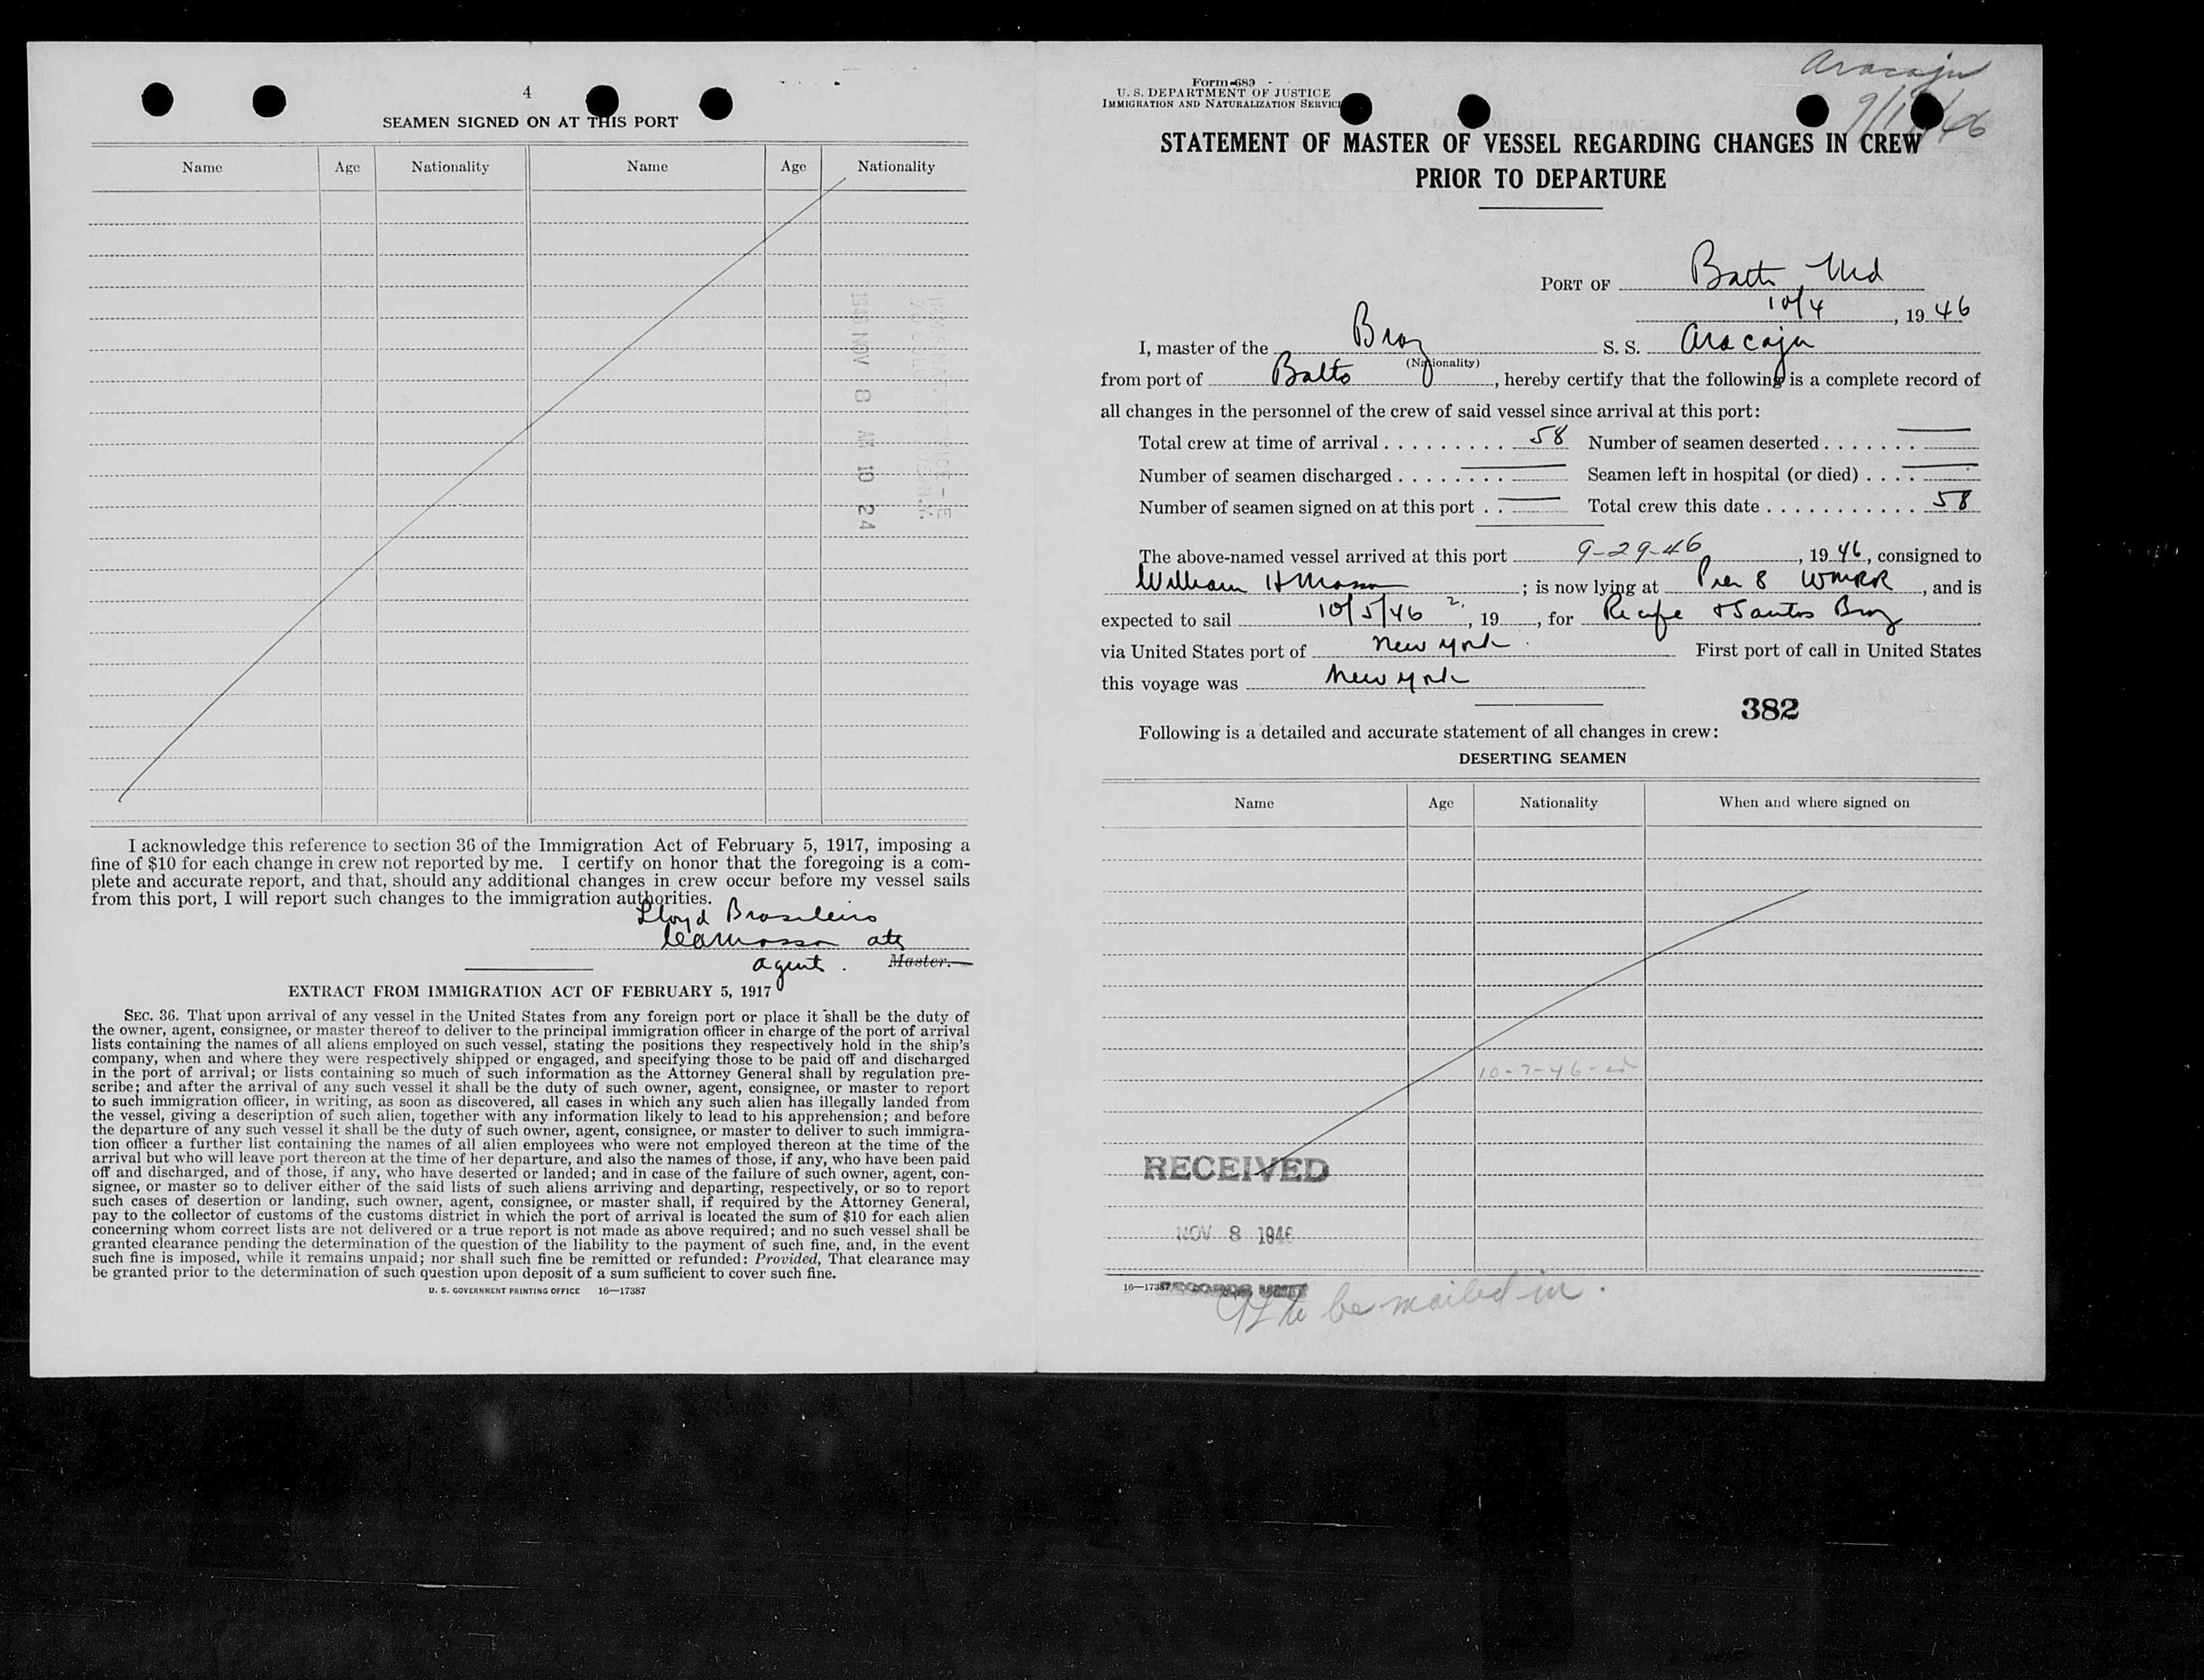 4
SEAMEN SIGNED ON AT THIS PORT
Name Age Nationality Name Age Nationality
1946 NOV 8 AM 10 24
I acknowledge this reference to section 36 of the Immigration Act of February 5, 1917, imposing a
fine of $10 for each change in crew not reported by me. I certify on honor that the foregoing is a com-
plete and accurate report, and that, should any additional changes in crew occur before my vessel sails
from this port, I will report such changes to the immigration authorities.
Lloyd Brasileiro
atty
agent. Master.
EXTRACT FROM IMMIGRATION ACT OF FEBRUARY 5, 1917
SEC. 36. That upon arrival of any vessel in the United States from any foreign port or place it shall be the duty of
the owner, agent, consignee, or master thereof to deliver to the principal immigration officer in charge of the port of arrival
lists containing the names of all aliens employed on such vessel, stating the positions they respectively hold in the ship's
company, when and where they were respectively shipped or engaged, and specifying those to be paid off and discharged
in the port of arrival; or lists containing so much of such information as the Attorney General shall by regulation pre-
scribe; and after the arrival of any such vessel it shall be the duty of such owner, agent, consignee, or master to report
to such immigration officer, in writing, as soon as discovered, all cases in which any such alien has illegally landed from
the vessel, giving a description of such alien, together with any information likely to lead to his apprehension; and before
the departure of any such vessel it shall be the duty of such owner, agent, consignee, or master to deliver to such immigra-
tion officer a further list containing the names of all alien employees who were not employed thereon at the time of the
arrival but who will leave port thereon at the time of her departure, and also the names of those, if any, who have been paid
off and discharged, and of those, if any, who have deserted or landed; and in case of the failure of such owner, agent, con-
signee, or master so to deliver either of the said lists of such aliens arriving and departing, respectively, or so to report
such cases of desertion or landing, such owner, agent, consignee, or master shall, if required by the Attorney General,
pay to the collector of customs of the customs district in which the port of arrival is located the sum of $10 for each alien
concerning whom correct lists are not delivered or a true report is not made as above required; and no such vessel shall be
granted clearance pending the determination of the question of the liability to the payment of such fine, and, in the event
such fine is imposed, while it remains unpaid; nor shall such fine be remitted or refunded: Provided, That clearance may
be granted prior to the determination of such question upon deposit of a sum sufficient to cover such fine.
U. S. GOVERNMENT PRINTING OFFICE 16—17387
Aracaju
Form 689
U. S. DEPARTMENT OF JUSTICE
IMMIGRATION AND NATURALIZATION SERVICE
STATEMENT OF MASTER OF VESSEL REGARDING CHANGES IN CREW
PRIOR TO DEPARTURE
PORT OF Balto Md
10/4, 1946
I, master of the Braz S. S. Aracaju
(Nationality)
from port of Balto, hereby certify that the following is a complete record of
all changes in the personnel of the crew of said vessel since arrival at this port:
Total crew at time of arrival . . . . . . . . . . 58 Number of seamen deserted . . . . . . .
Number of seamen discharged . . . . . . . . Seamen left in hospital (or died) . . . .
Number of seamen signed on at this port . . Total crew this date . . . . . . . . . . . . 58
The above-named vessel arrived at this port 9-29-46, 1946, consigned to
William H Masson; is now lying at Pier 8 WMRR, and is
expected to sail 10/5/46, 19, for Recife & Santos Braz
via United States port of New York. First port of call in United States
this voyage was New York
382
Following is a detailed and accurate statement of all changes in crew:
DESERTING SEAMEN
Name Age Nationality When and where signed on
10-7-46
RECEIVED
NOV 8 1946
16—17387 RECORDS UNIT
to be mailed in.